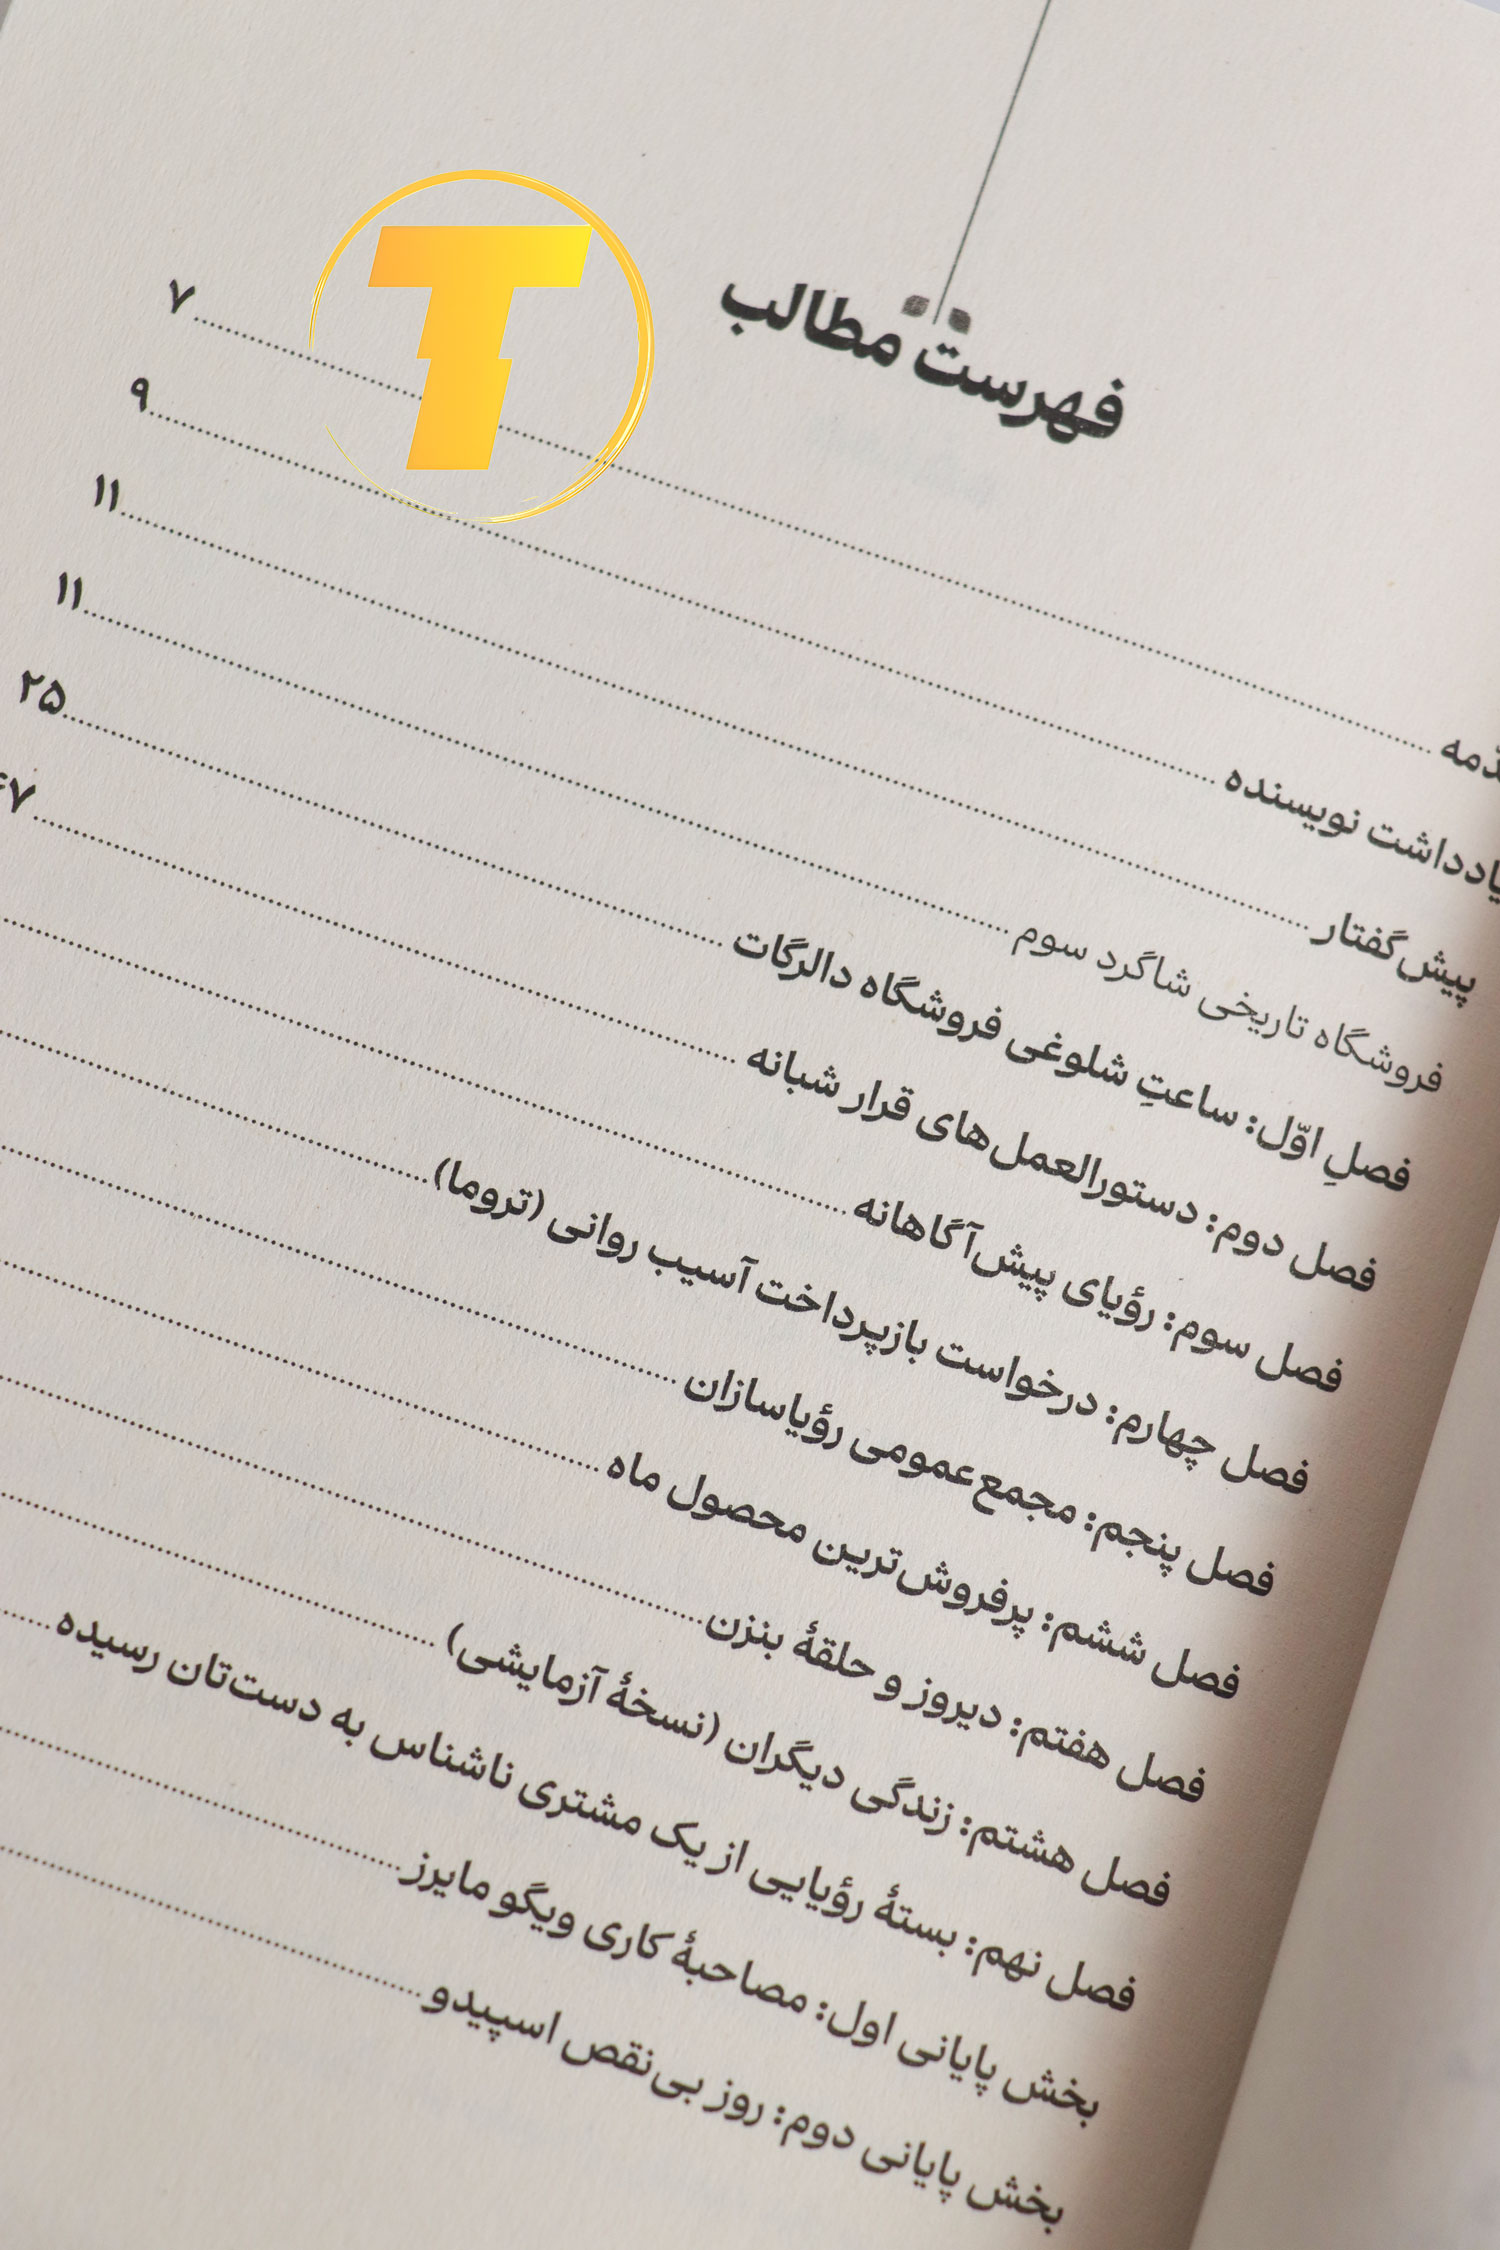 فهرست مطالب
T
۷
یادداشت نویسنده ۹
پیش‌گفتار ۱۱
فروشگاه تاریخی شاگرد سوم ۱۱
فصلِ اوّل: ساعتِ شلوغی فروشگاه دالرگات ۲۵
فصل دوم: دستورالعمل‌های قرار شبانه
فصل سوم: رؤیای پیش‌آگاهانه
فصل چهارم: درخواست بازپرداخت آسیب روانی (تروما)
فصل پنجم: مجمع‌عمومی رؤیاسازان
فصل ششم: پرفروش‌ترین محصول ماه
فصل هفتم: دیروز و حلقهٔ بنزن
فصل هشتم: زندگی دیگران (نسخهٔ آزمایشی)
فصل نهم: بستهٔ رؤیایی از یک مشتری ناشناس به دست‌تان رسیده
بخش پایانی اول: مصاحبهٔ کاری ویگو مایرز
بخش پایانی دوم: روز بی‌نقص اسپیدو